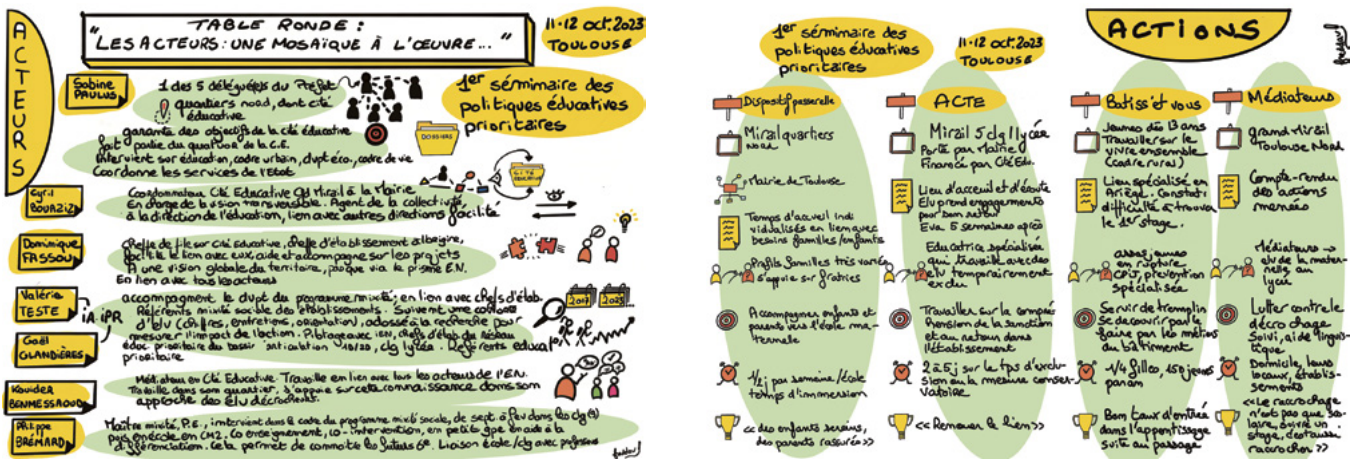 ACTEURS
TABLE RONDE :
"LES ACTEURS : UNE MOSAÏQUE À L'ŒUVRE..."
11-12 oct. 2023
TOULOUSE
1er séminaire des
politiques éducatives
prioritaires
Sabine
PAULUS
1 des 5 délégué(e)s du Préfet
quartiers nord, dont cité
éducative
garante des objectifs de la cité éducative
fait partie du quatuor de la C.E.
Intervient sur éducation, cadre urbain, dvpt éco, cadre de vie
Coordonne les services de l'Etat
DOSSIERS
CITÉ
EDUCATIVE
Cyril
BOURZIZ
Coordonnateur Cité Educative Gd Mirail à la Mairie
En charge de la vision transversible. Agent de la collectivité,
à la direction de l'éducation, lien avec autres directions facilité
Dominique
FASSOU
Cheffe de file sur Cité Educative, cheffe d'établissement à l'origine,
facilite le lien avec eux, aide et accompagne sur les projets
A une vision globale du territoire, pas que via le prisme E.N.
En lien avec tous les acteurs
Valérie
TESTE
IA-IPR
Gaël
GLANDIÈRES
accompagnent le dvpt du programme mixité, en lien avec chefs d'étab.
Référents mixité sociale des établissements. Suivent une cohorte
d'élv (chiffres, entretiens, orientation), adossé à la recherche pour
mesurer l'impact de l'action. Pilotage avec IEN, chefs d'étab du réseau
éduc prioritaire du bassin articulation clg lycée. Référents éducat°
prioritaire
2017
2023
Kouider
BENMESSAOUD
Médiateur en Cité Educative. Travaille en lien avec tous les acteurs de l'E.N.
Travaille dans son quartier. S'appuie sur cette connaissance dans son
approche des élv décrocheurs.
Philippe
BRÉMARD
Maître mixité, P.E., intervient dans le cadre du programme mixité sociale, de sept. à fev dans les clg
puis en école en CM2. Co enseignement, co-intervention, en petits gpe en aide à la
différenciation. Cela permet de connaître les futurs 6e. Liaison école/clg avec professeurs
1er séminaire des
politiques éducatives
prioritaires
11-12 oct. 2023
TOULOUSE
ACTIONS
Dispositif passerelle
Mirail quartiers
Nord
Mairie de Toulouse
Temps d'accueil indi
vidualisés en lien avec
besoins familles/enfants
Profils familles très variés
s'appuie sur fratries
Accompagner enfants et
parents vers l'école ma-
ternelle
1/2 j par semaine/école
temps d'immersion
<< des enfants sereins,
des parents rassurés >>
ACTE
Mirail 5 clg 1 lycée
Porté par Mairie
Financé par Cité Edu.
Lieu d'acceuil et d'écoute
Elv prend engagements
pour bon retour
Eva 5 semaines après
Educatrice spécialisée
qui travaille avec des
elv temporairement
exclu
Travailler sur la compré
hension de la sanction
et au retour dans
l'établissement
2 à 5 j sur le tps d'exclu
sion ou la mesure conser
vatoire
<< Renouer le lien >>
Batiss'et vous
Jeunes dès 13 ans
Travailler sur le
vivre ensemble
(cadre rural)
Lieu spécialisé en
Ariège. Constat :
difficulté à trouver
le 1er stage.
en rupture
CPIJ, prévention
spécialisée
Servir de tremplin
Se découvrir par le
faire par les métiers
du bâtiment
1/4 filles, 150 jeunes
par an
Bon taux d'entrée
dans l'apprentissage
suite au passage
Médiateurs
grand Mirail
Toulouse Nord
Compte-rendu
des actions
menées
Médiateurs →
elv de la mater-
nelle au
lycée
Lutter contre le
décrochage
Suivi, aide linguis-
tique
Domicile, leurs
locaux, établis-
sements
<< Le raccrochage
n'est pas que sco-
laire, suivre un
stage, c'est aussi
raccrocher >>